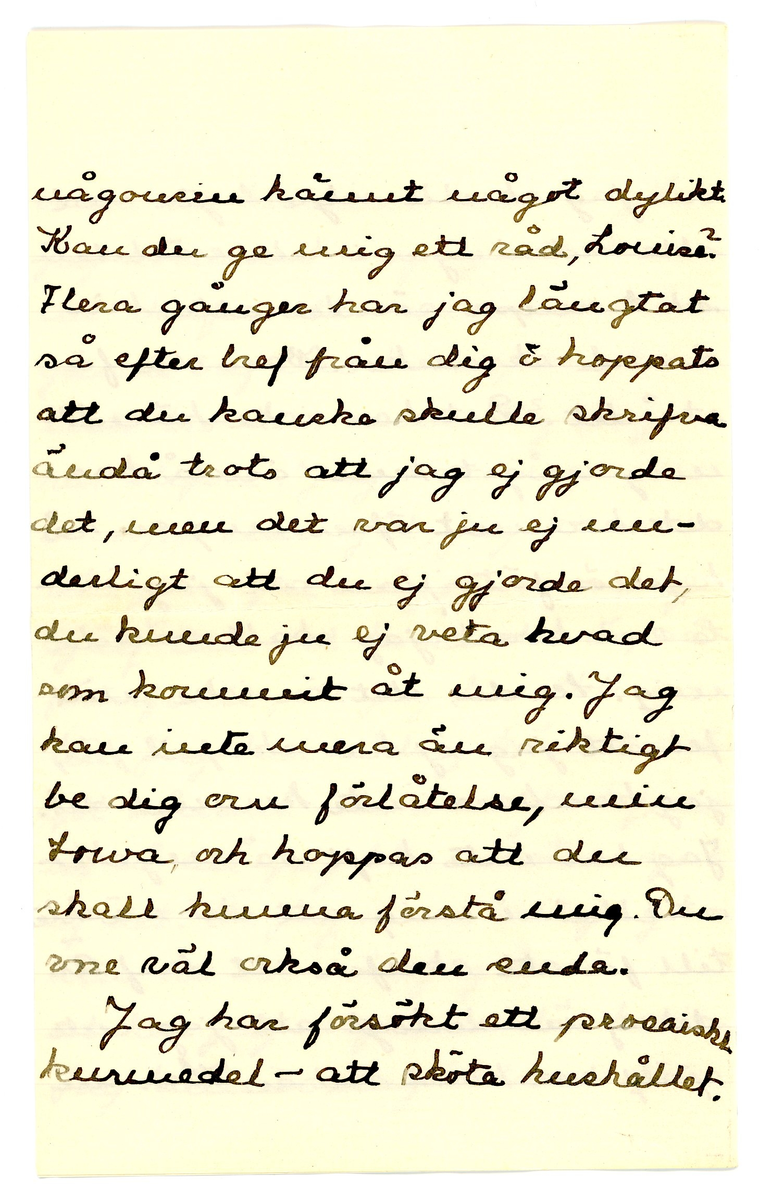 någonsin kännt något dylikt.
Kan du ge mig ett råd, Louise?
Flera gånger har jag längtat
så efter bref från dig ö hoppats
att du kanske skulle skrifva
ändå trots att jag ej gjorde
det, men det var ju ej un-
derligt att du ej gjorde det,
du kunde ju ej veta hvad
som kommit åt mig. Jag
kan inte mera än riktigt
be dig om förlåtelse, min
Lowa, och hoppas att du
skall kunna förstå mig. Du
vore väl också den enda.
Jag har försökt ett prosaiskt
kurmedel – att sköta hushållet.